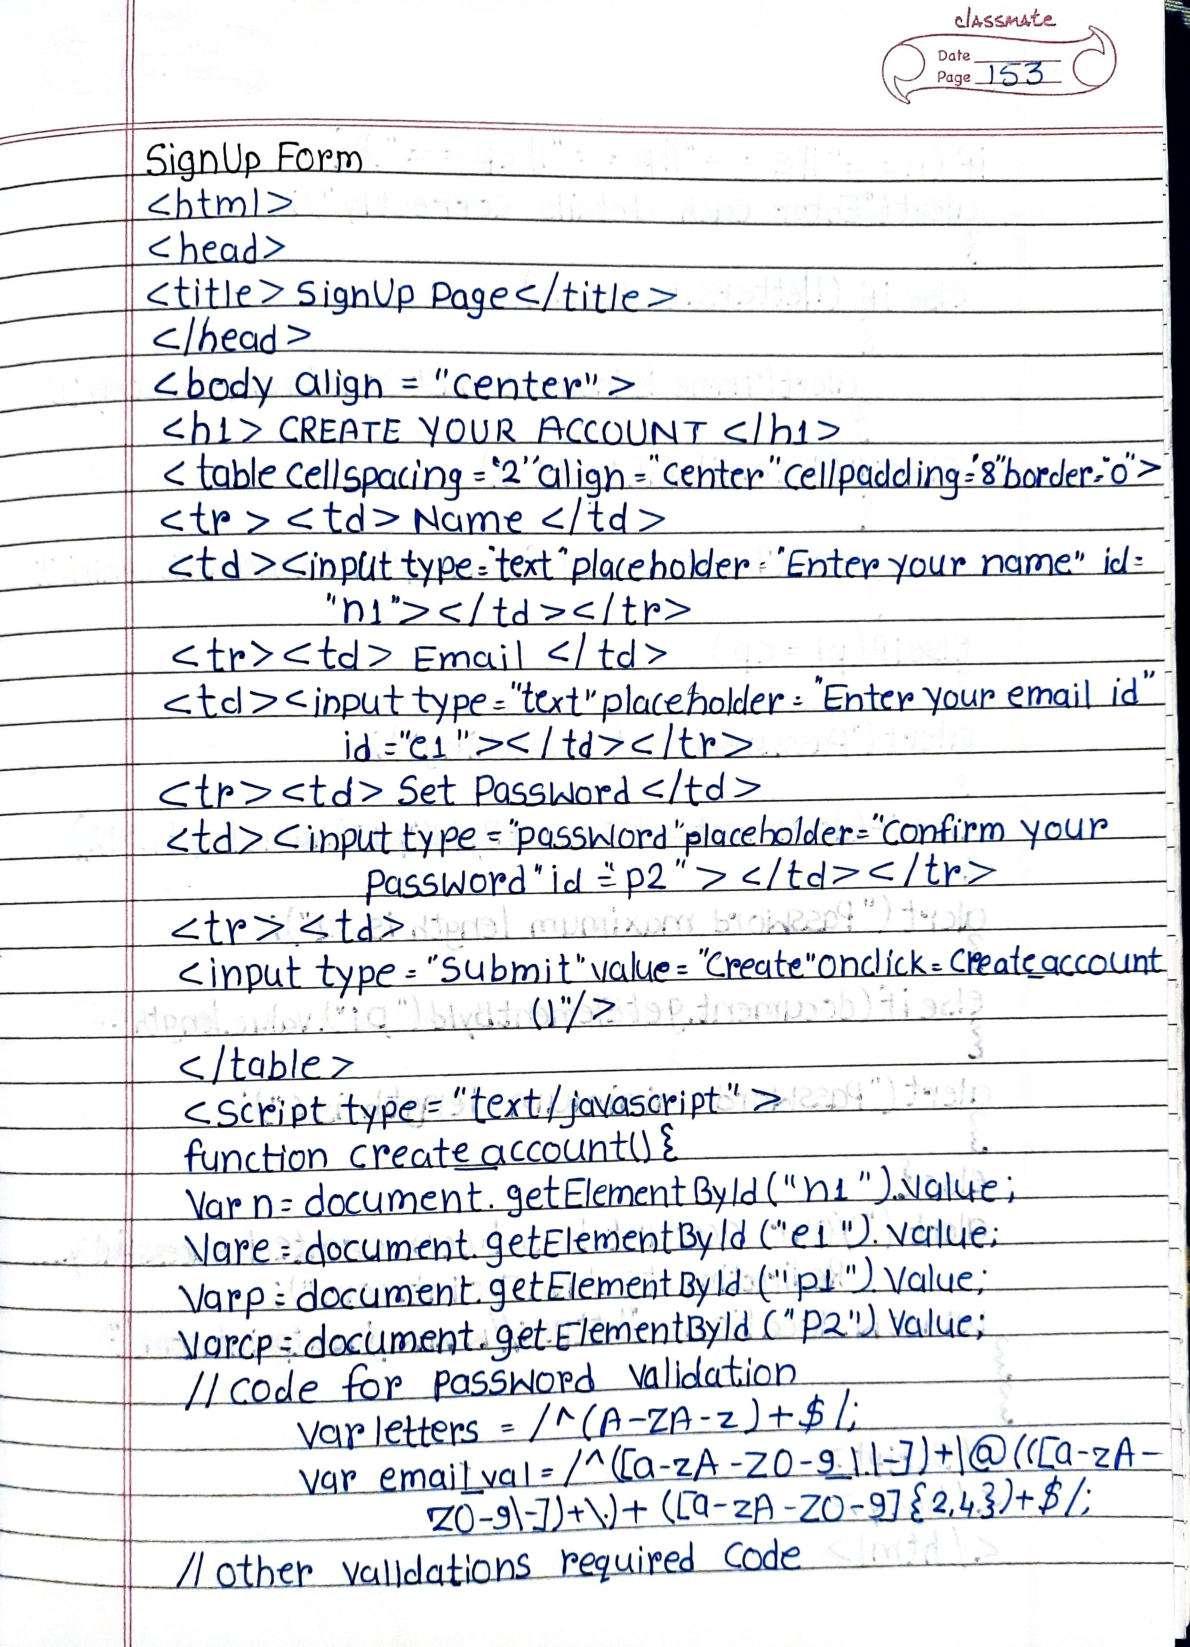 classmate
Date
Page 153
SignUp Form
<html>
<head>
<title> SignUp Page</title>
</head>
<body align = "center">
<h1> CREATE YOUR ACCOUNT </h1>
<table cellspacing = "2" align = "center" cellpadding = "8" border = "0">
<tr> <td> Name </td>
<td><input type = "text" placeholder = "Enter your name" id =
"n1"></td></tr>
<tr><td> Email </td>
<td><input type = "text" placeholder = "Enter your email id"
id = "e1"></td></tr>
<tr><td> Set Password </td>
<td><input type = "password" placeholder = "Confirm your
Password" id = "p2"> </td></tr>
<tr> <td>
<input type = "Submit" value = "Create" onclick = create_account
()"/>
</table>
<Script type = "text/javascript">
function create_account() {
Var n = document.getElementById("n1").value;
Var e = document.getElementById("e1").value;
Var p = document.getElementById("p1").value;
Var cp = document.getElementById("P2").Value;
// code for password validation
Var letters = /^(A-ZA-z)+$/;
var email_val = /^([a-zA-Z0-9_\.\-])+\@(([a-zA-
Z0-9\-])+\.)+([a-zA-Z0-9]{2,4})+$/;
// other validations required code